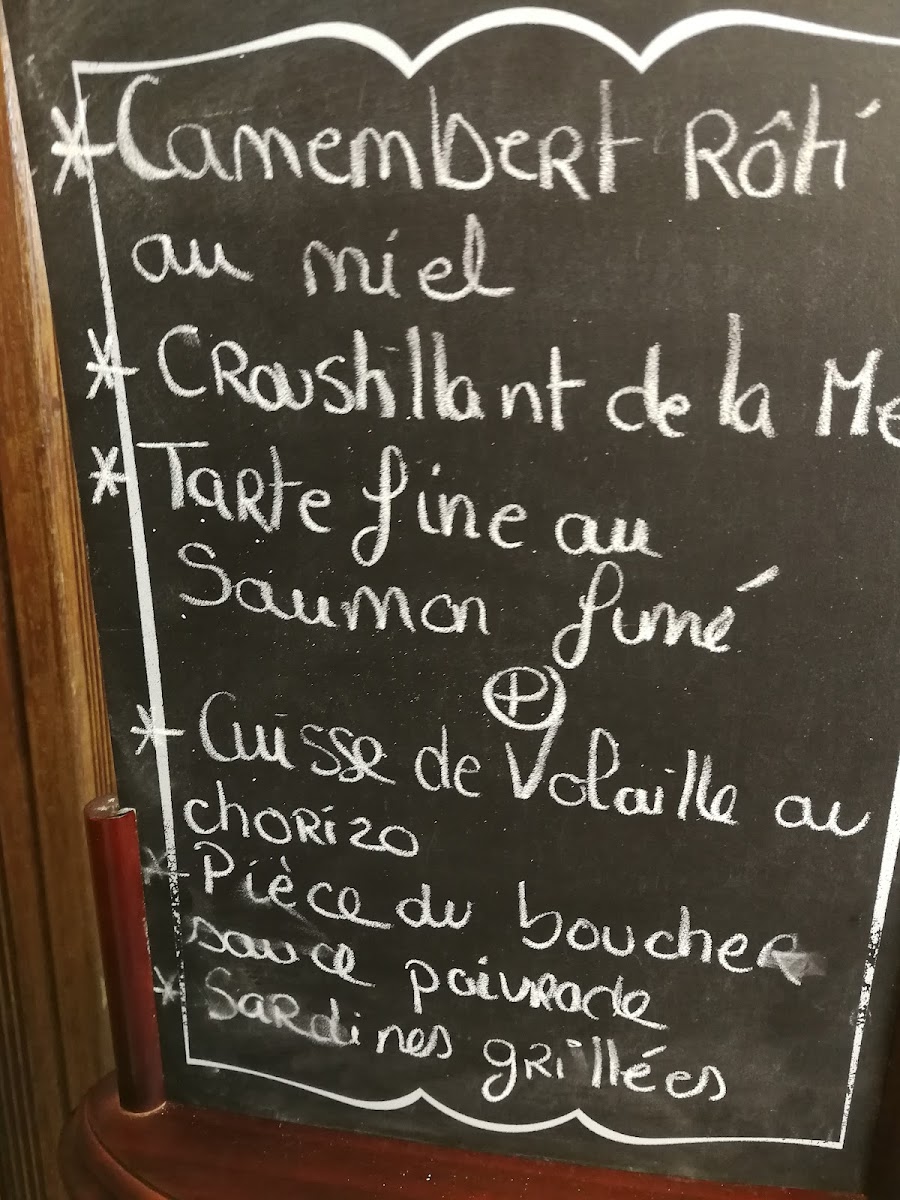 * Camembert Rôti
au miel
* Croustillant de la Me
* Tarte fine au
Saumon fumé
P
* Cuisse de Volaille au
chorizo
* Pièce du boucher
sauce poivrade
* Sardines grillées